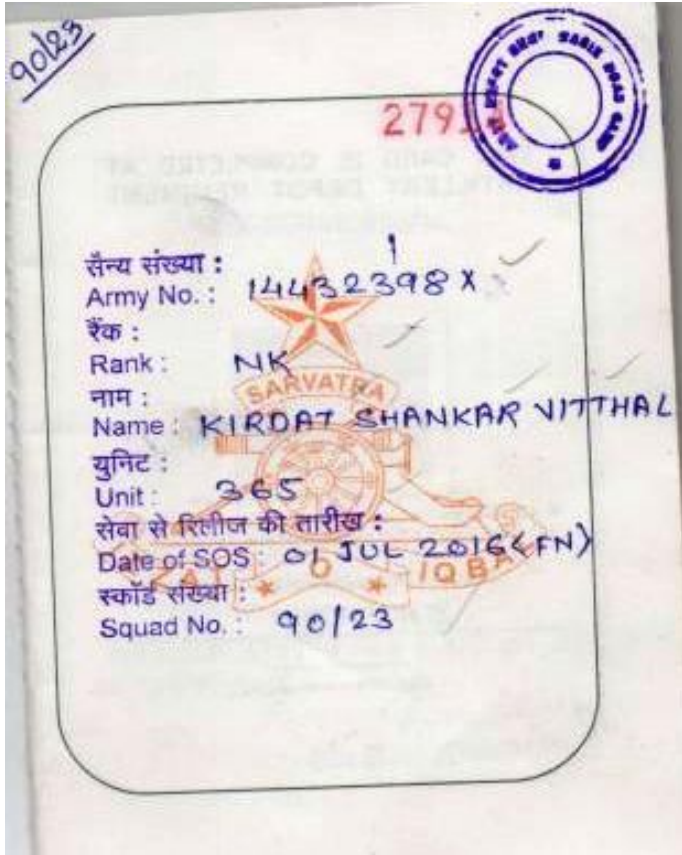 90/23
279
सैन्य संख्या :
Army No. : 14432398 X
रैंक :
Rank : NK
SARVATRA
नाम :
Name : KIRDAT SHANKAR VITTHAL
युनिट :
Unit : 365
सेवा से रिलीज की तारीख :
Date of SOS : 01 JUL 2016 (FN)
IQBAL
स्कॉड संख्या :
Squad No. : 90/23